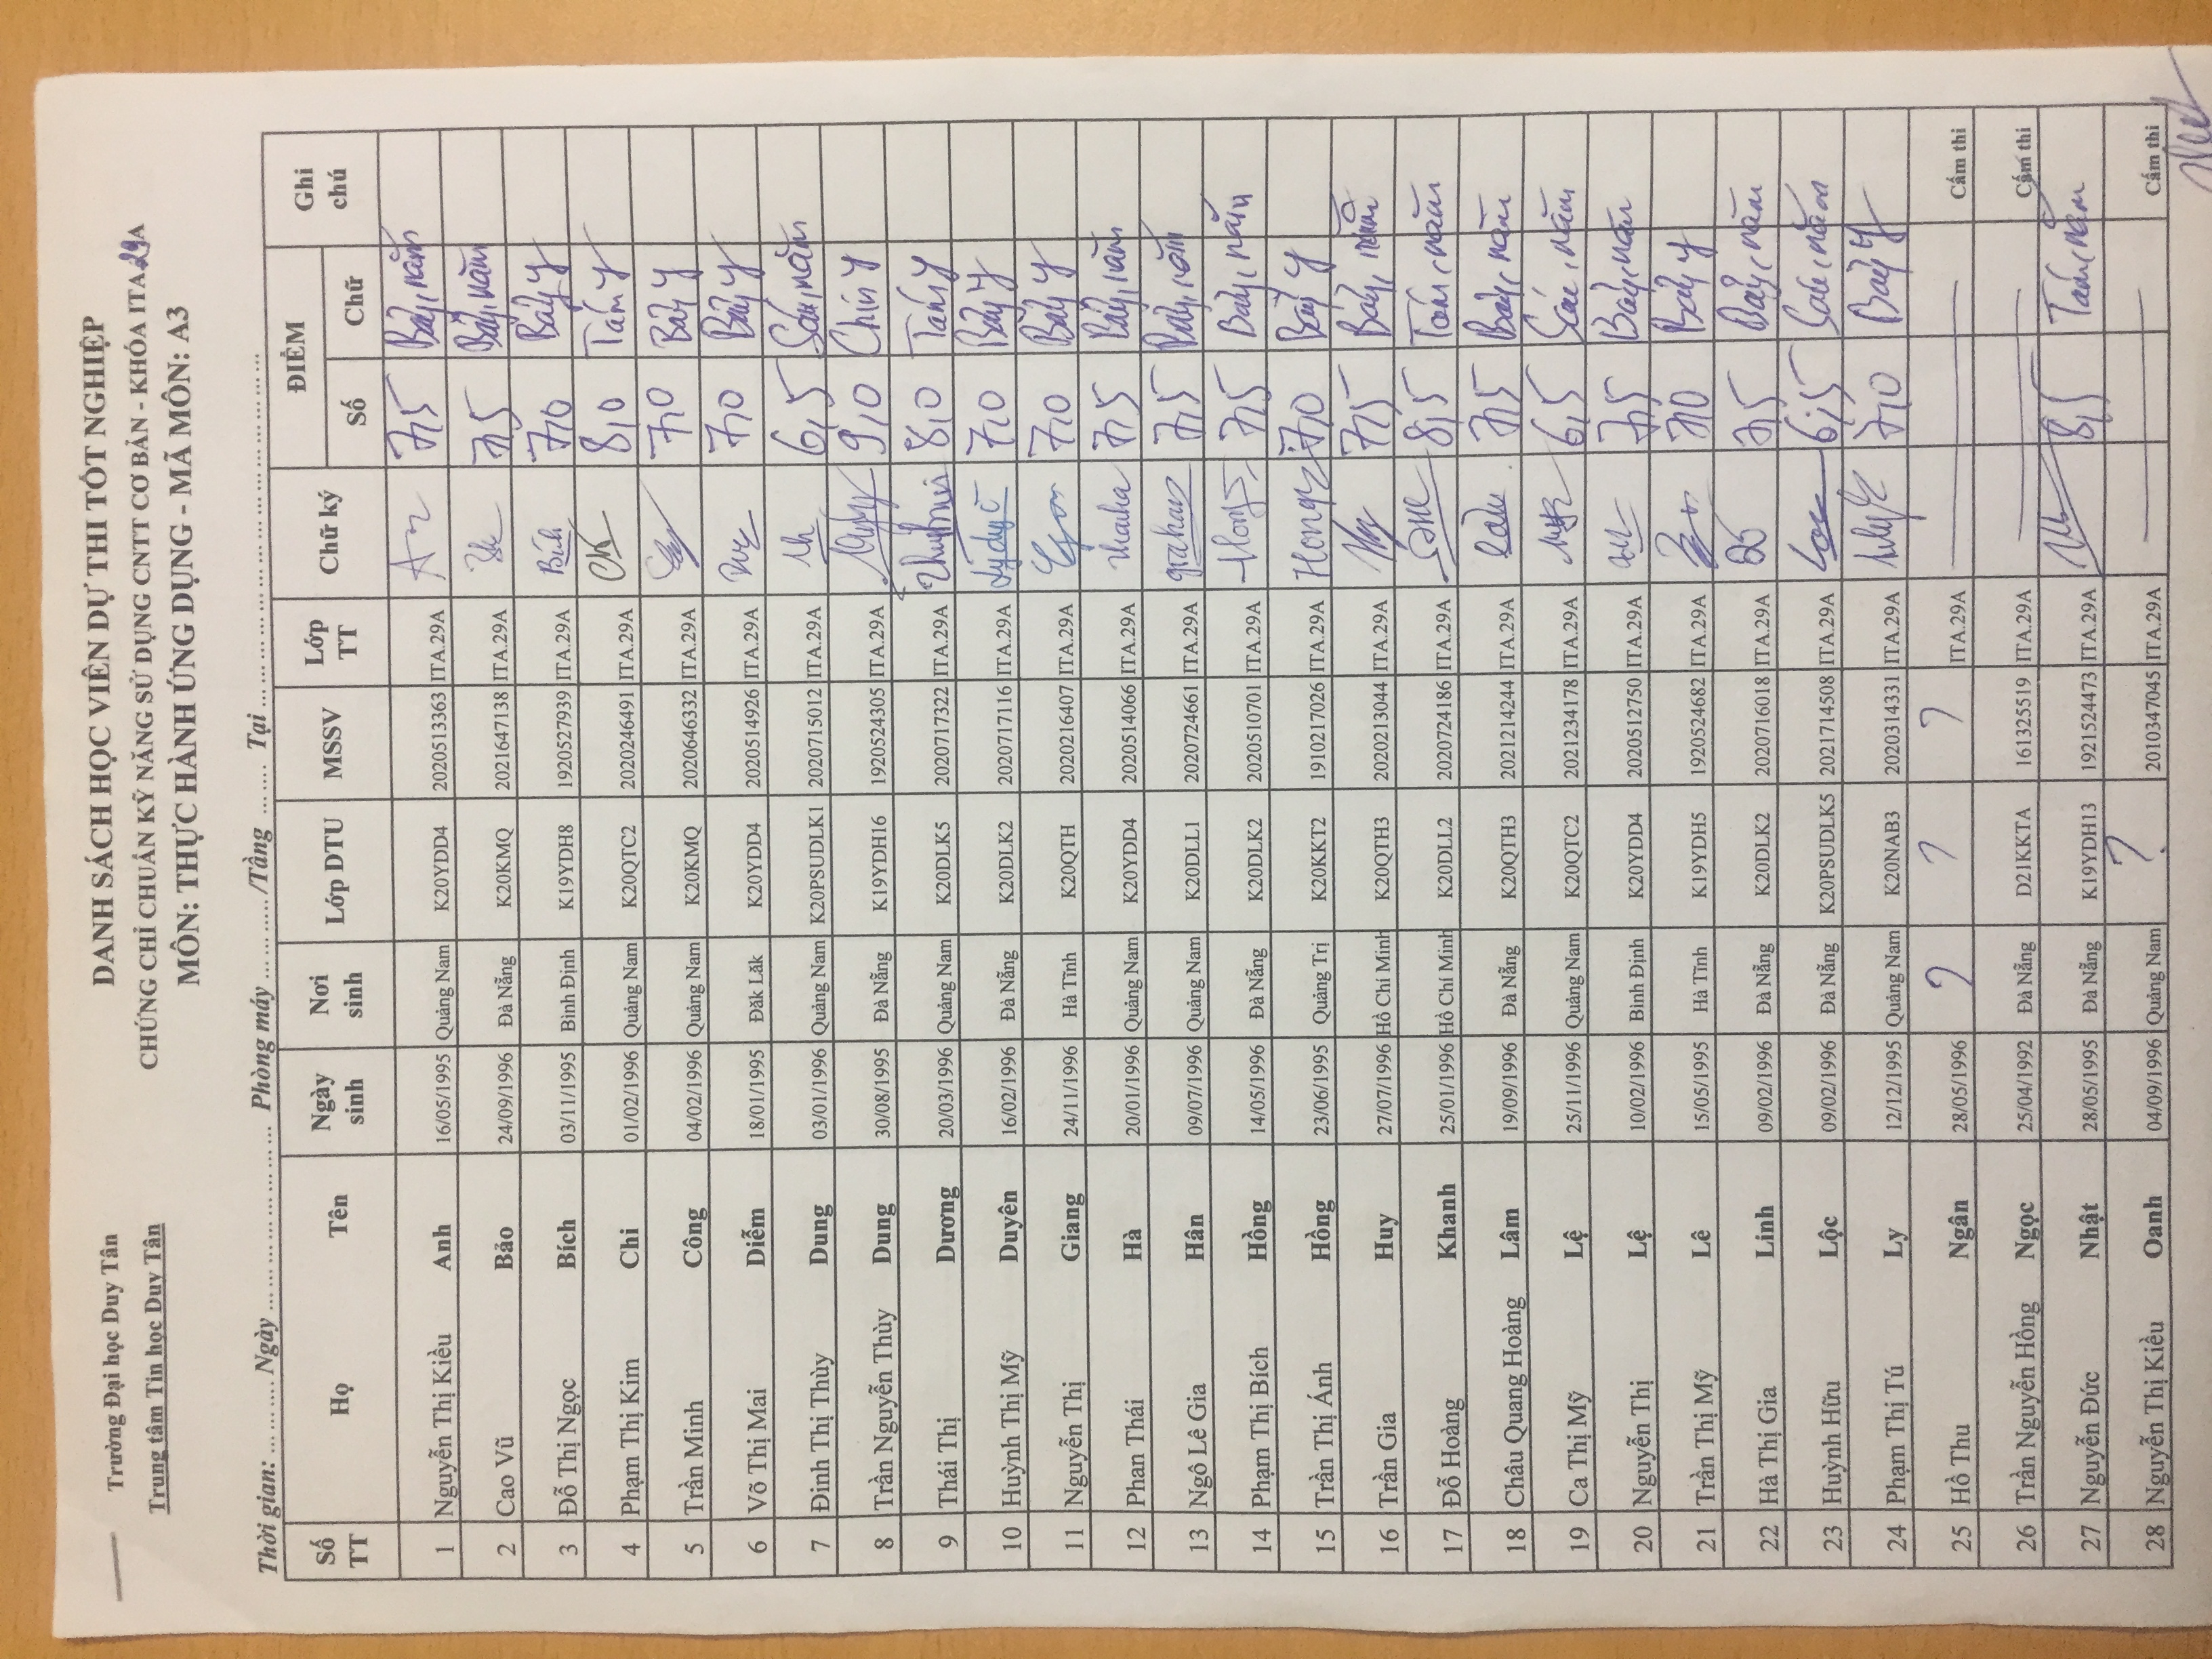 Trường Đại học Duy Tân
Trung tâm Tin học Duy Tân
DANH SÁCH HỌC VIÊN DỰ THI TỐT NGHIỆP
CHỨNG CHỈ CHUẨN KỸ NĂNG SỬ DỤNG CNTT CƠ BẢN - KHÓA ITA29A
MÔN: THỰC HÀNH ỨNG DỤNG - MÃ MÔN: A3
Thời gian: ... ... Ngày ... ... ... ... ... ... Phòng máy ... ... ... /Tầng ... ... Tại ... ... ... ... ... ... ... ... ... ... ... ...
Số TT Họ Tên Ngày sinh Nơi sinh Lớp DTU MSSV Lớp TT Chữ ký ĐIỂM Số Chữ Ghi chú
1 Nguyễn Thị Kiều Anh 16/05/1995 Quảng Nam K20YDD4 2020513363 ITA.29A 7,5 Bảy, năm
2 Cao Vũ Bảo 24/09/1996 Đà Nẵng K20KMQ 2021647138 ITA.29A 7,5 Bảy, năm
3 Đỗ Thị Ngọc Bích 03/11/1995 Bình Định K19YDH8 1920527939 ITA.29A Bích 7,0 Bảy y
4 Phạm Thị Kim Chi 01/02/1996 Quảng Nam K20QTC2 2020246491 ITA.29A 8,0 Tám y
5 Trần Minh Công 04/02/1996 Quảng Nam K20KMQ 2020646332 ITA.29A 7,0 Bảy y
6 Võ Thị Mai Diễm 18/01/1995 Đăk Lăk K20YDD4 2020514926 ITA.29A 7,0 Bảy y
7 Đinh Thị Thùy Dung 03/01/1996 Quảng Nam K20PSUDLK1 2020715012 ITA.29A 6,5 Sáu, năm
8 Trần Nguyễn Thùy Dung 30/08/1995 Đà Nẵng K19YDH16 1920524305 ITA.29A 9,0 Chín y
9 Thái Thị Dương 20/03/1996 Quảng Nam K20DLK5 2020717322 ITA.29A 8,0 Tám y
10 Huỳnh Thị Mỹ Duyên 16/02/1996 Đà Nẵng K20DLK2 2020717116 ITA.29A 7,0 Bảy y
11 Nguyễn Thị Giang 24/11/1996 Hà Tĩnh K20QTH 2020216407 ITA.29A 7,0 Bảy y
12 Phan Thái Hà 20/01/1996 Quảng Nam K20YDD4 2020514066 ITA.29A 7,5 Bảy, năm
13 Ngô Lê Gia Hân 09/07/1996 Quảng Nam K20DLL1 2020724661 ITA.29A giahan 7,5 Bảy, năm
14 Phạm Thị Bích Hồng 14/05/1996 Đà Nẵng K20DLK2 2020510701 ITA.29A Hong 7,5 Bảy, năm
15 Trần Thị Ánh Hồng 23/06/1995 Quảng Trị K20KKT2 1910217026 ITA.29A Hong 7,0 Bảy y
16 Trần Gia Huy 27/07/1996 Hồ Chí Minh K20QTH3 2020213044 ITA.29A 7,5 Bảy, năm
17 Đỗ Hoàng Khanh 25/01/1996 Hồ Chí Minh K20DLL2 2020724186 ITA.29A 8,5 Tám, năm
18 Châu Quang Hoàng Lâm 19/09/1996 Đà Nẵng K20QTH3 2021214244 ITA.29A 7,5 Bảy, năm
19 Ca Thị Mỹ Lệ 25/11/1996 Quảng Nam K20QTC2 2021234178 ITA.29A 6,5 Sáu, năm
20 Nguyễn Thị Lệ 10/02/1996 Bình Định K20YDD4 2020512750 ITA.29A 7,5 Bảy, năm
21 Trần Thị Mỹ Lê 15/05/1995 Hà Tĩnh K19YDH5 1920524682 ITA.29A 7,0 Bảy y
22 Hà Thị Gia Linh 09/02/1996 Đà Nẵng K20DLK2 2020716018 ITA.29A 7,5 Bảy, năm
23 Huỳnh Hữu Lộc 09/02/1996 Đà Nẵng K20PSUDLK5 2021714508 ITA.29A 6,5 Sáu, năm
24 Phạm Thị Tú Ly 12/12/1995 Quảng Nam K20NAB3 2020314331 ITA.29A 7,0 Bảy y
25 Hồ Thu Ngân 28/05/1996 ? ? ? ITA.29A Cấm thi
26 Trần Nguyễn Hồng Ngọc 25/04/1992 Đà Nẵng D21KKTA 161325519 ITA.29A Cấm thi
27 Nguyễn Đức Nhật 28/05/1995 Đà Nẵng K19YDH13 1921524473 ITA.29A 8,5 Tám, năm
28 Nguyễn Thị Kiều Oanh 04/09/1996 Quảng Nam ? 2010347045 ITA.29A Cấm thi